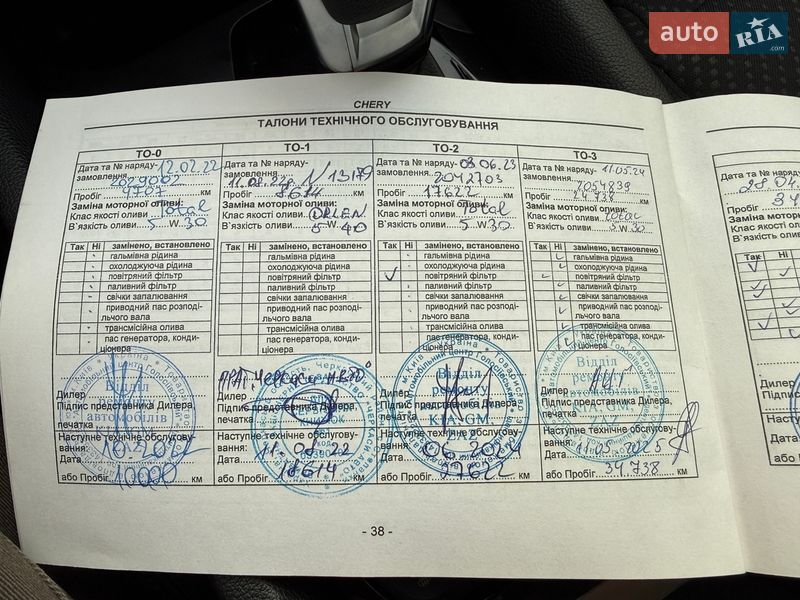 auto RIA .com
CHERY
ТАЛОНИ ТЕХНІЧНОГО ОБСЛУГОВУВАННЯ
ТО-0
Дата та № наряду- 12.02.22
замовлення 2029002
Пробіг 4707 км
Заміна моторної оливи:
Клас якості оливи Total
В`язкість оливи 5 W 30
Так Ні замінено, встановлено
гальмівна рідина
охолоджуюча рідина
повітряний фільтр
паливний фільтр
свічки запалювання
приводний пас розподі-
льчого вала
трансмісійна олива
пас генератора, конди-
ціонера
Дилер
Підпис представника Дилера,
печатка
Відділ
автомобілів
Наступне технічне обслугову-
вання:
Дата 10.2022
або Пробіг 10000 км
ТО-1
Дата та № наряду-
замовлення 11.08.22р. N 13179
Пробіг 8614 км
Заміна моторної оливи:
Клас якості оливи ORLEN
В`язкість оливи 5 W 40
Так Ні замінено, встановлено
гальмівна рідина
охолоджуюча рідина
повітряний фільтр
паливний фільтр
свічки запалювання
приводний пас розподі-
льчого вала
трансмісійна олива
пас генератора, конди-
ціонера
Дилер
Підпис представника Дилера,
печатка
Наступне технічне обслугову-
вання:
Дата
або Пробіг 18614 км
ТО-2
Дата та № наряду- 08.06.23
замовлення 2042703
Пробіг 17622 км
Заміна моторної оливи:
Клас якості оливи Total
В`язкість оливи 5 W 30
Так Ні замінено, встановлено
гальмівна рідина
охолоджуюча рідина
повітряний фільтр
паливний фільтр
свічки запалювання
приводний пас розподі-
льчого вала
трансмісійна олива
пас генератора, конди-
ціонера
Дилер
Підпис представника Дилера,
печатка
Відділ
ремонту
Наступне технічне обслугову-
вання:
Дата 06.2024
або Пробіг км
ТО-3
Дата та № наряду- 11.05.24
замовлення 2054839
Пробіг 24738 км
Заміна моторної оливи:
Клас якості оливи Total
В`язкість оливи 5 W 30
Так Ні замінено, встановлено
гальмівна рідина
охолоджуюча рідина
повітряний фільтр
паливний фільтр
свічки запалювання
приводний пас розподі-
льчого вала
трансмісійна олива
пас генератора, конди-
ціонера
Дилер
Підпис представника Дилера,
печатка
Відділ
Наступне технічне обслугову-
вання:
Дата 11.05.2025
або Пробіг 34.738 км
- 38 -
Дата та №
замовлення
Пробіг 34
Заміна мотор
Клас якості о
В`язкість оли
Так Ні
Дилер
Підпис пред
печатка
Наступне т
вання:
Дата
або Пробіг